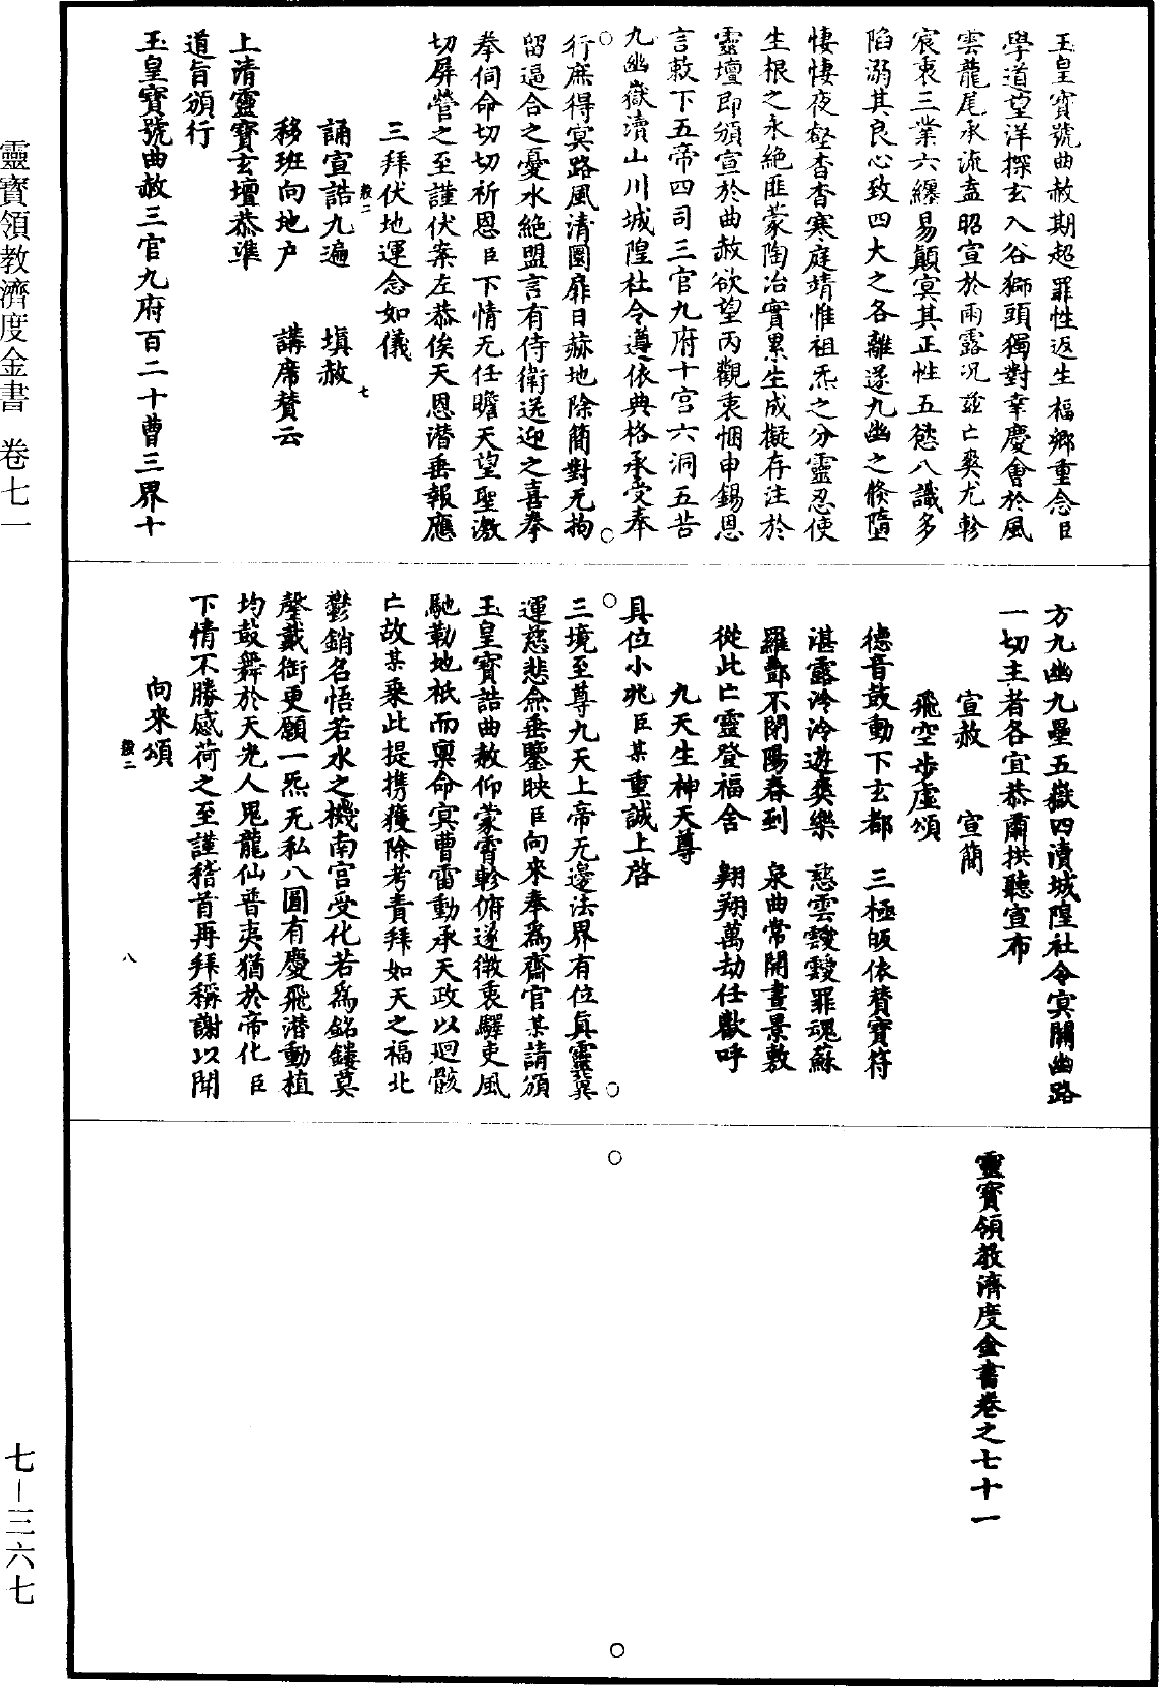 玉皇寶號曲赦期超罪性返生福鄉重念臣
學道望洋探玄入谷獅頭獨對幸慶會於風
雲龍尾承流盍昭宣於雨露況茲亡爽尤軫
宸衷三業六纏易顛冥其正性五慾八識多
陷溺其良心致四大之各離遂九幽之倏墮
悽悽夜壑杳杳寒庭靖惟祖炁之分靈忍使
生根之永絕匪蒙陶冶實累生成擬存注於
靈壇即頒宣於曲赦欲望丙觀衷悃申錫恩
言敕下五帝四司三官九府十宫六洞五苦
九幽嶽瀆山川城隍社令遵依典格承受奉
行庶得冥路風清圜扉日赫地除簡對无拘
留逼合之憂水絕盟言有侍衛送迎之喜拳
拳伺命切切祈恩臣下情无任瞻天望聖激
切屏營之至謹伏案左恭俟天恩潜垂報應
三拜伏地運念如儀
誦宣誥九遍　填赦
移班向地户　講席贊云
上清靈寶玄壇恭準
道旨頒行
玉皇寶號曲赦三官九府百二十曹三界十
方九幽九壘五嶽四瀆城隍社令冥關幽路
一切主者各宜恭肅拱聽宣布
宣赦　宣簡
飛空步虛頌
德音鼓動下玄都　三極皈依贊寶符
湛露泠泠遊爽樂　慈雲靉靉罪魂蘇
羅酆不閉陽春到　泉曲常開晝景敷
從此亡靈登福舍　翱翔萬劫任歡呼
九天生神天尊
具位小兆臣某重誠上啓
三境至尊九天上帝无邊法界有位真靈冀
運慈悲僉垂鑒映臣向來奉爲齋官某請頒
玉皇寶誥曲赦仰蒙霄軫俯遂微衷驛吏風
馳勒地祇而禀命冥曹雷動承天政以廻骸
亡故某乘此提携獲除考責拜如天之福北
鬱銷名悟若水之機南宫受化若爲銘鏤莫
罄戴銜更願一炁无私八圓有慶飛潜動植
均鼓舞於天光人鬼龍仙普夷猶於帝化臣
下情不勝感荷之至謹稽首再拜稱謝以聞
向來頌
靈寶領教濟度金書卷之七十一
靈寶領教濟度金書　卷七一
七－三六七
七
八